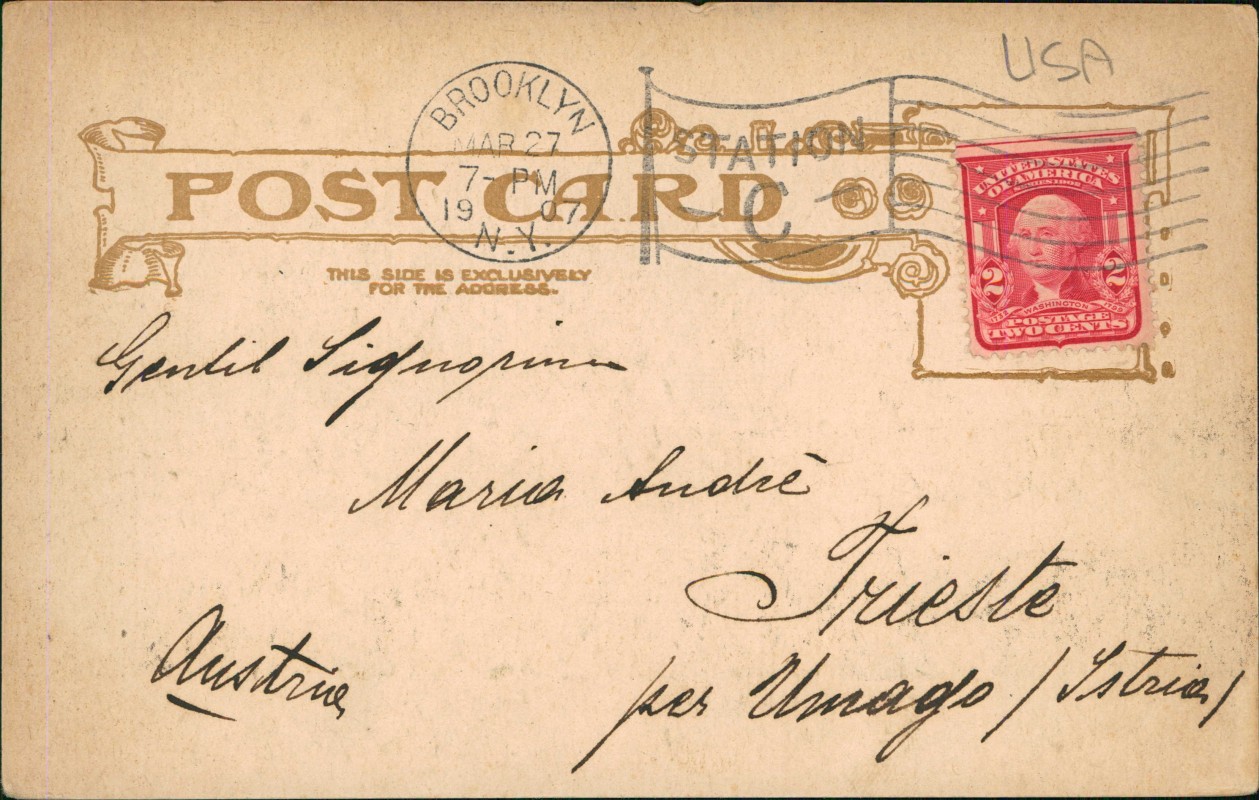 USA
BROOKLYN
MAR 27
7- PM
19 07
N.Y.
STATION
C
POST CARD
THIS SIDE IS EXCLUSIVELY
FOR THE ADDRESS.
UNITED STATES
OF AMERICA
SERIES 1902
2 2
1732 WASHINGTON 1799
POSTAGE
TWO CENTS
Gentil Signorina
Maria Andrè
Trieste
Austria
per Umago (Istria)